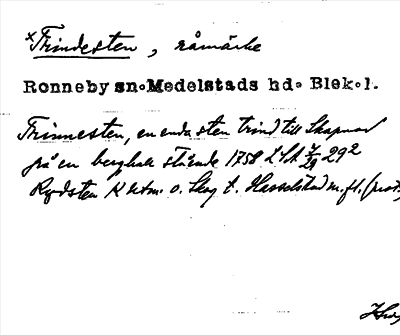 ×Trindesten, råmärke
Ronneby sn. Medelstads hd. Blek.l.
Trinnesten, en enda sten trind till Skapnad
på en berghall stående 1758 LSA 292
Rydsten K o. Skog t. Hasselstad m.fl.